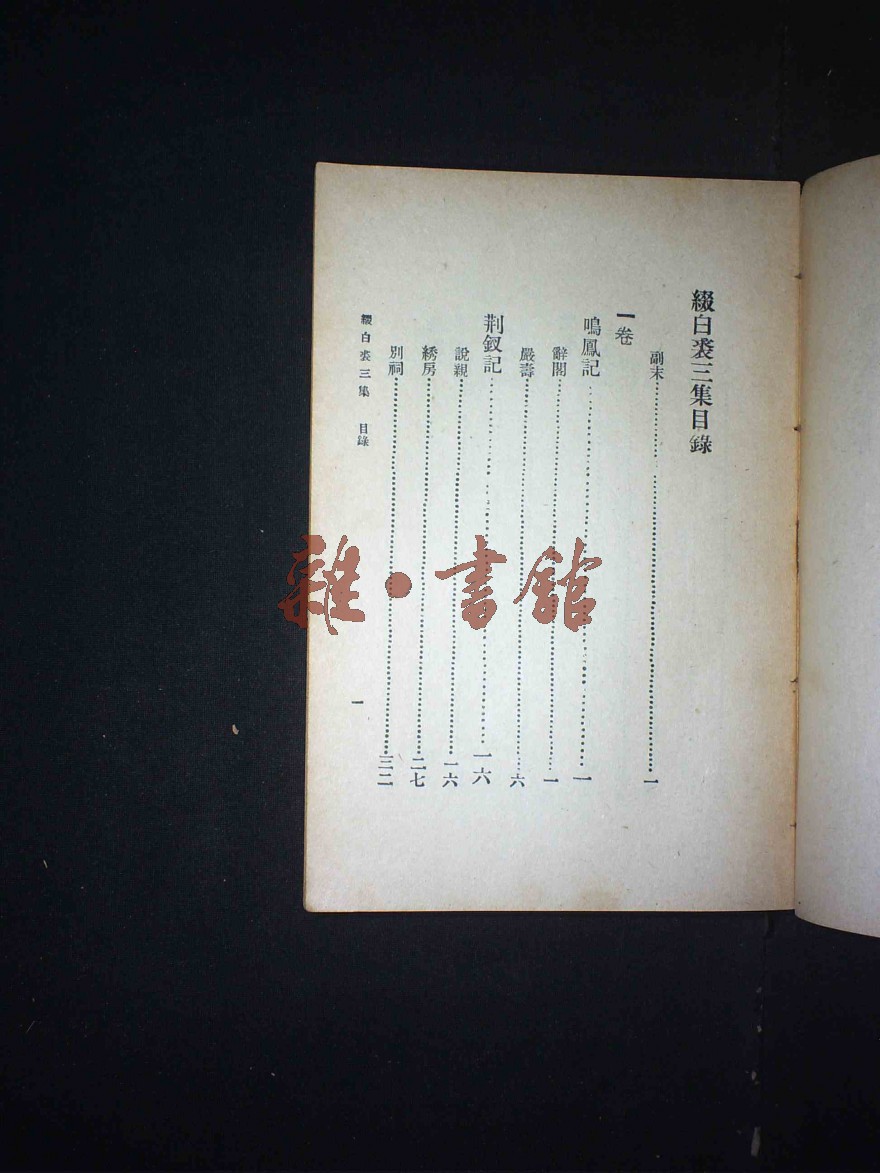 綴白裘三集目錄
副末……………………一
一卷
鳴鳳記……………………一
辭閣……………………一
嚴壽……………………六
荆釵記……………………一六
說親……………………一六
綉房……………………二七
別祠……………………三二
綴白裘三集 目錄
一
雜·書館